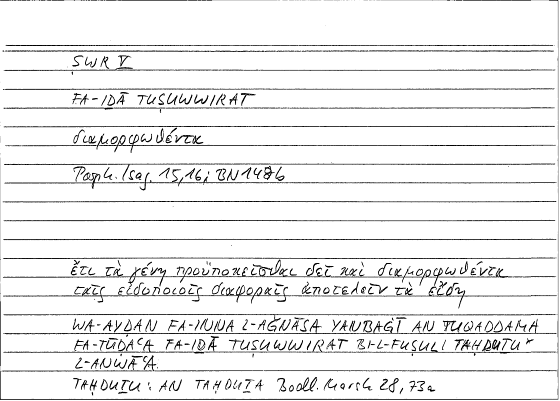 ṢWR V
FA-IḎĀ TUṢUWWIRAT
διαμορφωθέντα
Porph. Isag. 15,16; BN 148b
ἔτι τὰ γένη προϋποκεῖσθαι δεῖ καὶ διαμορφωθέντα
ταῖς εἰδοποιοῖς διαφοραῖς ἀποτελεῖν τὰ εἴδη
WA-AYḌAN FA-INNA L-AǦNĀSA YANBAĠĪ AN TUQADDAMA
FA-TŪḌAʿA FA-IḎĀ TUṢUWWIRAT BI-L-FUṢŪLI TAḤDUṮU*
L-ANWĀʿA.
TAḤDUṮU: AN TAḤDUṮA Bodl. Marsh 28, 73a